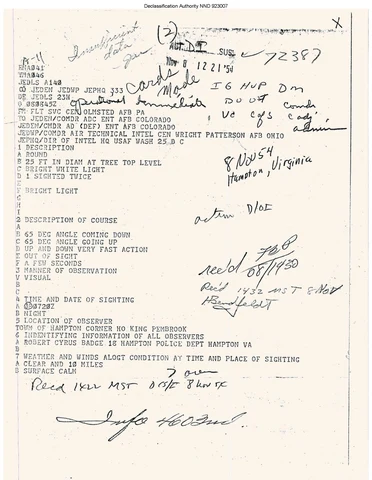 Declassification Authority NND 923007
(2)
X
Insufficient
data
72387
Nov 8 12 21 '54
WMA046
JEDLS A140
cards
made
JEDEN JEDWP JEPHQ 333
DE JEDLS 23N
Operational Immediate
FM FLT SVC CEN OLMSTED AFB PA
TO JEDEN/COMDR ADC ENT AFB COLORADO
JEDEN/COMDR AD (DEF) ENT AFB COLORADO
JEDWP/COMDR AIR TECHNICAL INTEL CEN WRIGHT PATTERSON AFB OHIO
JEPHQ/DIR OF INTEL HQ USAF WASH 25 D C
1 DESCRIPTION
A ROUND
B 25 FT IN DIAM AT TREE TOP LEVEL
C BRIGHT WHITE LIGHT
D 1 SIGHTED TWICE
E
F BRIGHT LIGHT
G
H
I
2 DESCRIPTION OF COURSE
A
B 65 DEG ANGLE COMING DOWN
C 65 DEG ANGLE GOING UP
D UP AND DOWN VERY FAST ACTION
E OUT OF SIGHT
F A FEW SECONDS
3 MANNER OF OBSERVATION
A VISUAL
B
C
4 TIME AND DATE OF SIGHTING
B NIGHT
5 LOCATION OF OBSERVER
TOWN OF HAMPTON CORNER NO KING PEMBROOK
6 INDENTIFYING INFORMATION OF ALL OBSERVERS
A ROBERT CYRUS BADGE 18 HAMPTON POLICE DEPT HAMPTON VA
B
7 WEATHER AND WINDS ALOGT CONDITION AY TIME AND PLACE OF SIGHTING
A CLEAR AND 10 MILES
B SURFACE CALM
8 Nov 54
Hampton, Virginia
action D/OI
rec'd 08/1930
Rec'd 1432 MST 8 Nov
Recd 1422 MST
Info 4602nd